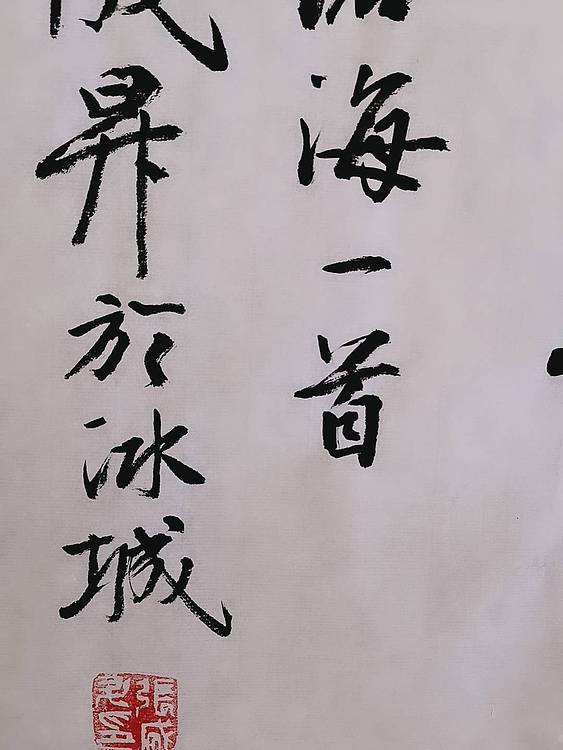 海一首
昇於冰城
張